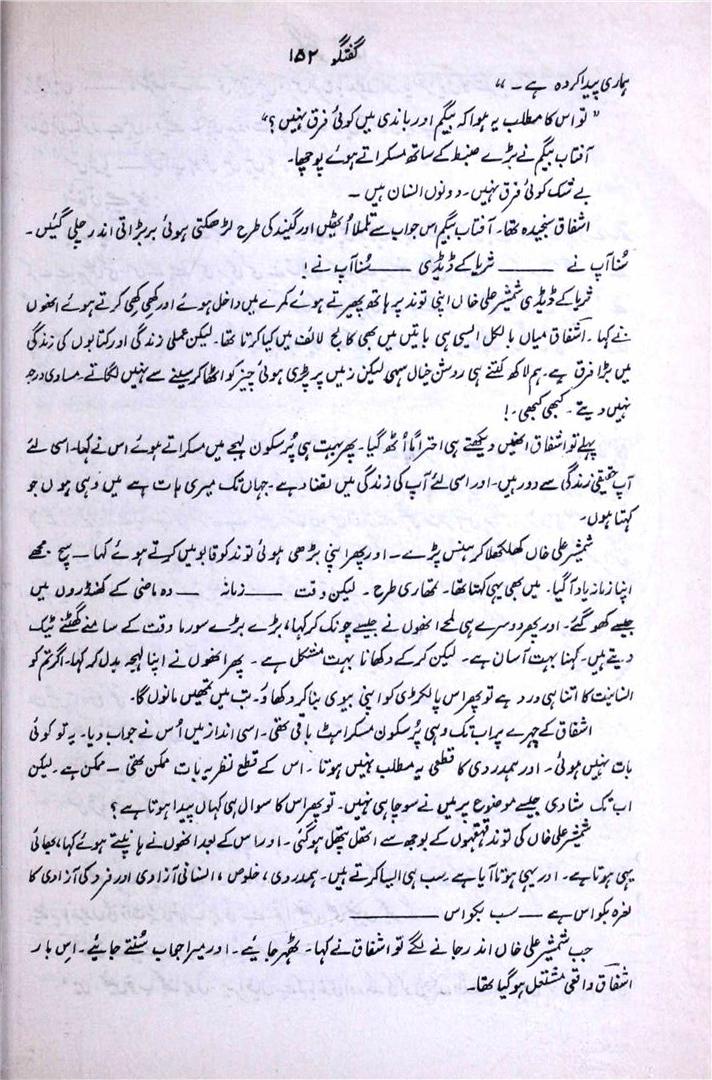 گفتگو ۱۵۲
ہماری پیدا کردہ ہے۔ “
” تو اس کا مطلب یہ ہوا کہ بیگم اور باندی میں کوئی فرق نہیں؟ “
آفتاب بیگم نے بڑے ضبط کے ساتھ مسکراتے ہوئے پوچھا۔
بے شک کوئی فرق نہیں۔ دونوں انسان ہیں ۔
اشفاق سنجیدہ تھا۔ آفتاب بیگم اس جواب سے تلملا اُٹھیں اور گیند کی طرح لڑھکتی ہوئی بڑبڑاتی اندر چلی گئیں ۔
سُنا آپ نے ——— ثریا کے ڈیڈی ——— سُنا آپ نے !
ثریا کے ڈیڈی شمشیر علی خاں اپنی توند پر ہاتھ پھیرتے ہوئے کمرے میں داخل ہوئے اور کھی کھی کرتے ہوئے انھوں
نے کہا ۔ اشفاق میاں بالکل ایسی ہی باتیں میں بھی کالج لائف میں کیا کرتا تھا۔ لیکن عملی زندگی اور کتابوں کی زندگی
میں بڑا فرق ہے۔ ہم لاکھ کتنے ہی روشن خیال سہی لیکن زمین پر پڑی ہوئی چیز کو اٹھا کر سینے سے نہیں لگاتے۔ مساوی درجہ
نہیں دیتے ۔ کبھی کبھی ۔!
پہلے تو اشفاق انھیں دیکھتے ہی احتراماً اُٹھ گیا۔ پھر بہت ہی پُرسکون لہجے میں مسکراتے ہوئے اس نے کہا۔ اسی لئے
آپ حقیقی زندگی سے دور ہیں۔ اور اسی لئے آپ کی زندگی میں تضاد ہے۔ جہاں تک میری بات ہے میں وہی ہوں جو
کہتا ہوں۔
شمشیر علی خاں کھلکھلا کر ہنس پڑے ۔ اور پھر اپنی بڑھی ہوئی توند کو قابو میں کرتے ہوئے کہا — سچ مجھے
اپنا زمانہ یاد آگیا۔ میں بھی یہی کہتا تھا۔ تمھاری طرح ۔ لیکن وقت —— زمانہ —— وہ ماضی کے کھنڈروں میں
جیسے کھو گئے۔ اور پھر دوسرے ہی لمحے انھوں نے جیسے چونک کر کہا، بڑے بڑے سورما وقت کے سامنے گھٹنے ٹیک
دیتے ہیں۔ کہنا بہت آسان ہے۔ لیکن کر کے دکھانا بہت مشکل ہے ۔ پھر انھوں نے اپنا لہجہ بدل کر کہا۔ اگر تم کو
انسانیت کا اتنا ہی درد ہے تو پھر اس پالکڑی کو اپنی بیوی بنا کر دکھاؤ۔ تب میں تمھیں مانوں گا۔
اشفاق کے چہرے پر اب تک وہی پُرسکون مسکراہٹ باقی تھی۔ اسی انداز میں اُس نے جواب دیا۔ یہ تو کوئی
بات نہیں ہوئی ۔ اور ہمدردی کا قطعی یہ مطلب نہیں ہوتا ۔ اس کے قطع نظر یہ بات ممکن تھی — ممکن ہے۔ لیکن
اب تک شادی جیسے موضوع پر میں نے سوچا ہی نہیں۔ تو پھر اس کا سوال ہی کہاں پیدا ہوتا ہے ؟
شمشیر علی خاں کی توند قہقہوں کے بوجھ سے اتھل پتھل ہوگئی ۔ اور اس کے بعد انھوں نے ہانپتے ہوئے کہا، بھائی
یہی ہوتا ہے۔ اور یہی ہوتا آیا ہے سب ہی ایسا کرتے ہیں۔ ہمدردی، خلوص ، انسانی آزادی اور فرد کی آزادی کا
نعرہ بکواس ہے —— سب بکواس ———
جب شمشیر علی خاں اندر جانے لگے تو اشفاق نے کہا۔ ٹھہر جائیے ۔ اور میرا جواب سُنتے جائیے ۔ اس بار
اشفاق واقعی مشتعل ہو گیا تھا۔